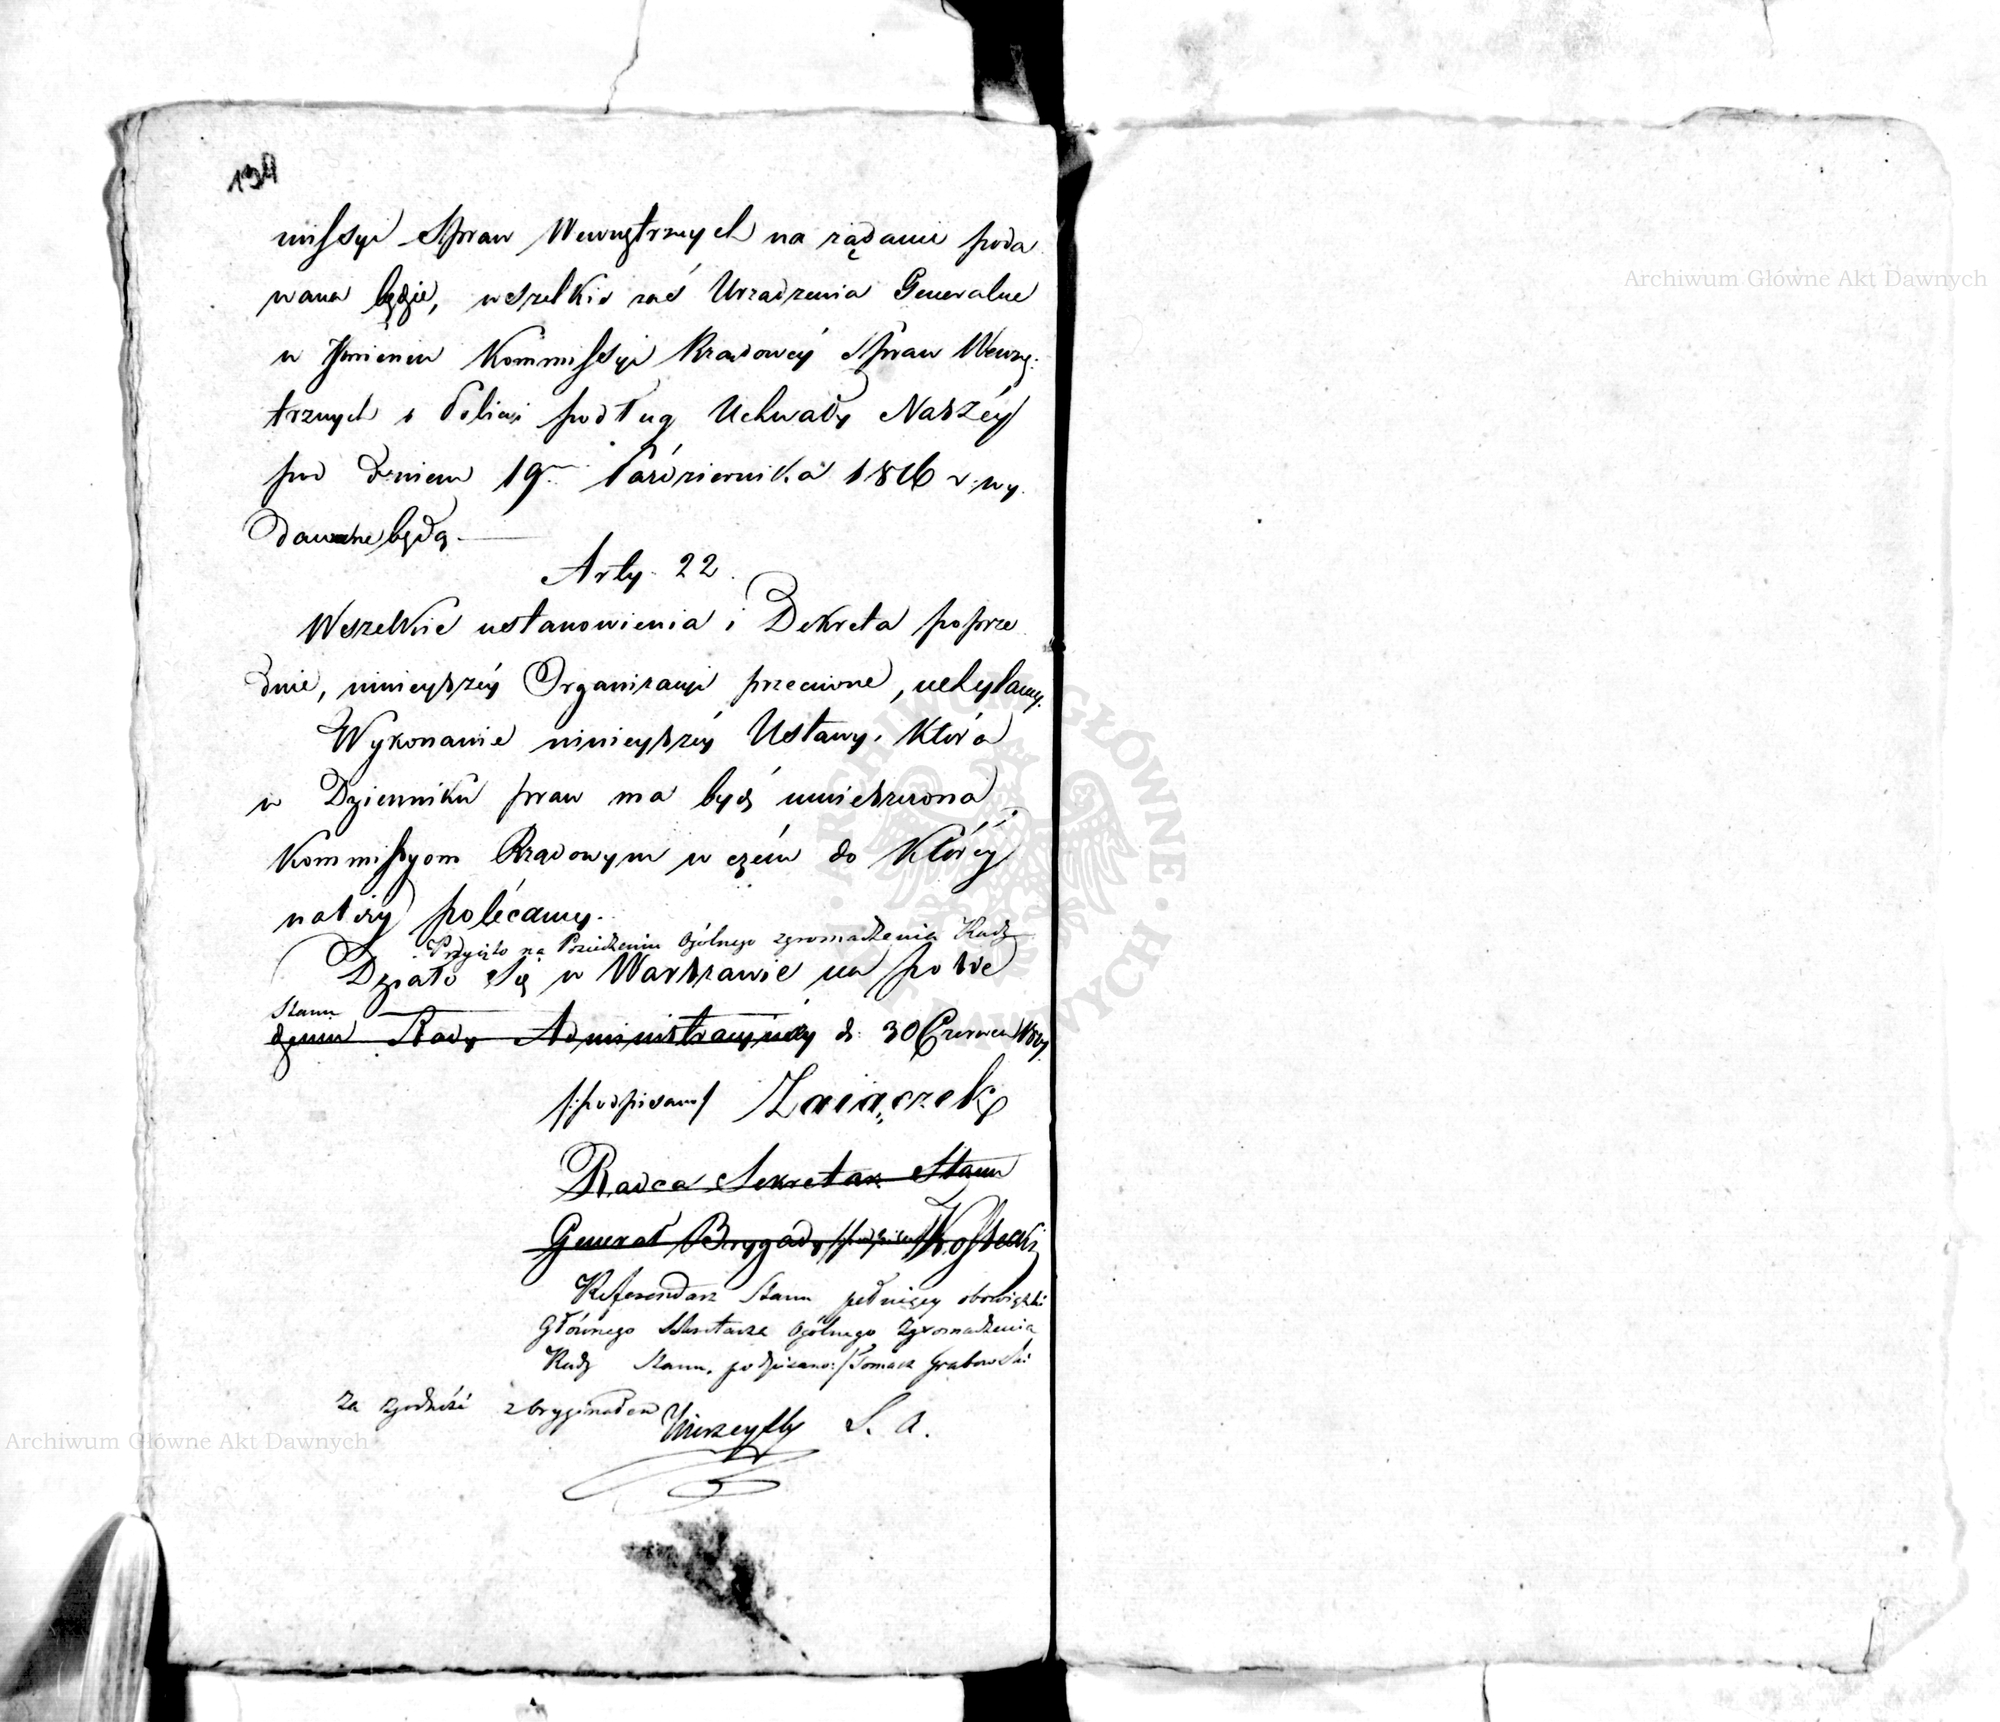 134
missyi Spraw Wewnętrznych na żądanie poda
wana będzie, wszelkie zaś Urządzenia Generalne
w Jmieniu Kommissyi Rządowéy Spraw Wewnę:
trznych i Policyi podług Uchwały Naszéy
pod dniem 19 Października 1816 r: wy
dawane będą.
Arty. 22.
Wszelkie ustanowienia i Dekreta poprze
dnie, ninieyszéy Organizacyi przeciwne, uchylamy.
Wykonanie ninieyszéy Ustawy, która
w Dzienniku praw ma bydź umieszczona
Kommissyom Rządowym w czém do któréy
należy polécamy.
Przyięto na Posiedzeniu Ogólnego zgromadzenia Rady
Działo się w Warszawie na posie
Stanu
dzeniu Rady Administracyinéy d: 30 Czerwca
/:podpisano/ Zaiączek
Radca Sekretarz Stanu
Generał Brygady /podpisano/ Kossecki
Referendarz Stanu pełniący obowiązki
Głównego Sekretarza Ogólnego Zgromadzenia
Rady Stanu, podpisano:/Tomasz Grabowski
Za zgodność z oryginałem
S. A.
Archiwum Główne Akt Dawnych
Archiwum Główne Akt Dawnych
ARCHIWUM GŁÓWNE AKT DAWNYCH